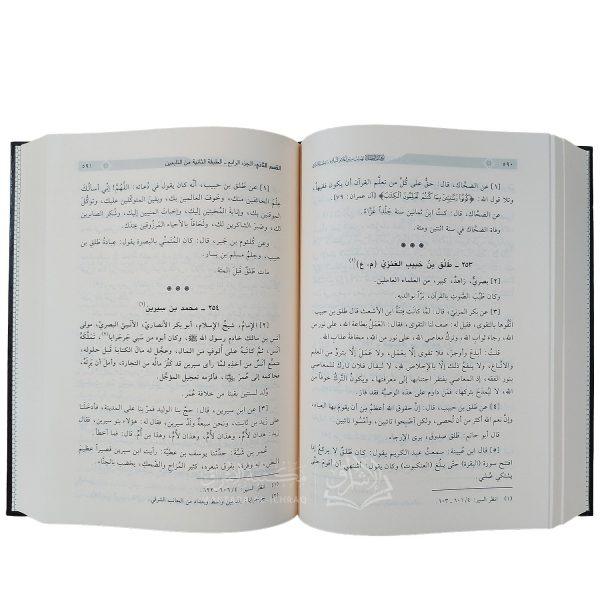 ٥٩٠
[٨] عن الضحّاك، قال: حقٌّ على كُلِّ من تعلَّم القرآن أن يكون فقيهاً.
وتلا قول الله: ﴿كُونُوا رَبَّانِيِّينَ بِمَا كُنتُمْ تُعَلِّمُونَ الْكِتَابَ﴾ [آل عمران: ٧٩].
عن الضحّاك، قال: كنتُ ابنَ ثمانين سنة جَلْداً غَزَّاءً.
وفاة الضحّاك في سنة اثنتين ومئة.
* * *
٢٥٣ ـ طَلْقُ بنُ حَبيبٍ العَنَزيُّ (م، ٤)(١)
[٢] بصريٌّ، زاهدٌ، كبير، من العلماء العاملين.
وكان طَيِّبَ الصَّوتِ بالقرآن، برّاً بوالديه.
عن بكر المزني، قال: لمّا كانت فتنةُ ابن الأشعث قال طلق بن حبيب:
اتَّقُوها بالتقوى، فقيل له: صف لنا التقوى، فقال: العَمَلُ بطاعة الله، على نور
من الله، رجاءَ ثواب الله، وتركُ معاصي الله، على نورٍ من الله، مخافةَ عذاب الله.
قلتُ: أبدعَ وأوجزَ، فلا تقوى إلّا بعملٍ، ولا عملَ إلّا بتروٍّ من العلم
والاتِّباع، ولا ينفعُ ذلك إلّا بالإخلاص لله، لا ليقال فلان تاركٌ للمعاصي
بنور الفقه، إذ المعاصي يفتقر اجتنابها إلى معرفتها، ويكونُ التَّركُ خوفاً من الله،
لا ليُمدَحَ بتركها، فمن داوم على هذه الوصيَّة فقد فاز.
[٤] عن طلق بن حبيب، قال: إنَّ حقوق الله أعظمُ مِن أن يقومَ بها العباد،
وإنَّ نعم الله أكثر من أن تُحصى، ولكن أصبِحوا تائبين، وأمسُوا تائبين.
قال أبو حاتم: طلق صدوق، يرى الإرجاء.
قال ابن عيينة: سمعتُ عبد الكريم يقول: كان طلقٌ لا يركعُ إذا
افتتح سورة (البقرة) حتى يبلغ (العنكبوت) وكان يقول: أشتهي أن أقوم حتّى
يشتكي صُلبي.
(١) انظر السير: ٤/٦٠١ ـ ٦٠٣
القسم الثاني، الجزء الرابع ـ الطبقة الثانية من التابعين
٥٩١
[٨] عن طَلْق بن حبيب، أنَّه كان يقول في دُعائه: اللّهُمَّ! إنِّي أسألكَ
عِلْمَ الخائفين منك، وخوفَ العالمين بك، ويقينَ المتوكِّلين عليك، وتوكُّلَ
الموقنين بك، وإنابةَ المُخبتين إليك، وإخباتَ المنيبين إليك، وشُكرَ الصابرين
لك، وصَبرَ الشاكرين لك، ولَحَاقاً بالأحياءِ المرزوقين عندك.
وعن كلثوم بن جبر، قال: كان المُتمنِّي بالبصرة يقول: عبادةُ طلق بن
حبيب، وحِلْمُ مسلم بن يسار.
مات طَلْقٌ قبلَ المئة.
* * *
٢٥٤ ـ محمد بن سيرين(١)
[٢] الإمامُ، شيخُ الإسلام، أبو بكر الأنصاريّ، الأنَسيُّ البصري، مولى
أنس بن مالك خادم رسول الله ﷺ، وكان أبوه من سَبي جَرجَرايا(٢)، تملَّكهُ
أنَسٌ، ثمَّ كاتَبهُ على أُلوفٍ من المال، فوفّاه وعجّل له مالَ الكتابة قبلَ حلوله،
فتمنَّع أنَسٌ من أخذِه لمّا رأى سيرين قد كثُر مالُه من التجارة، وأمل أن يَرِثَهُ،
فحاكمه إلى عُمَرَ ، فألزمه تعجيلَ المُؤجَّل.
ولد لسنتين بقيتا من خلافة عُمر.
[٣] عن ابن سيرين، قال: حجَّ بنا أبو الوليد فمرَّ بنا على المدينة، فأدخلَنا
على زيد بن ثابت، ونحن سبعةٌ وَلَدُ سيرين، فقال له: هؤلاء بنو سيرين، فقال
زيد: هذان لأُمٍّ، وهذان لأُمٍّ، وهذان لأُمٍّ، وهذا مِن أُمٍّ، قال: فما أخطأ.
عمر بن شَبَّة: حدَّثنا يوسف بن عطية: رأيتُ ابن سيرين قصيراً عظيمَ
البطن، له وَفرة، يفرقُ شعرَهُ، كثيرَ المُزاحِ والضَّحك، يخضب بالحِنَّاء.
(١) انظر السير: ٤/٦٠٦ ـ ٦٢٢
بين واسط وبغداد من الجانب الشرقي.